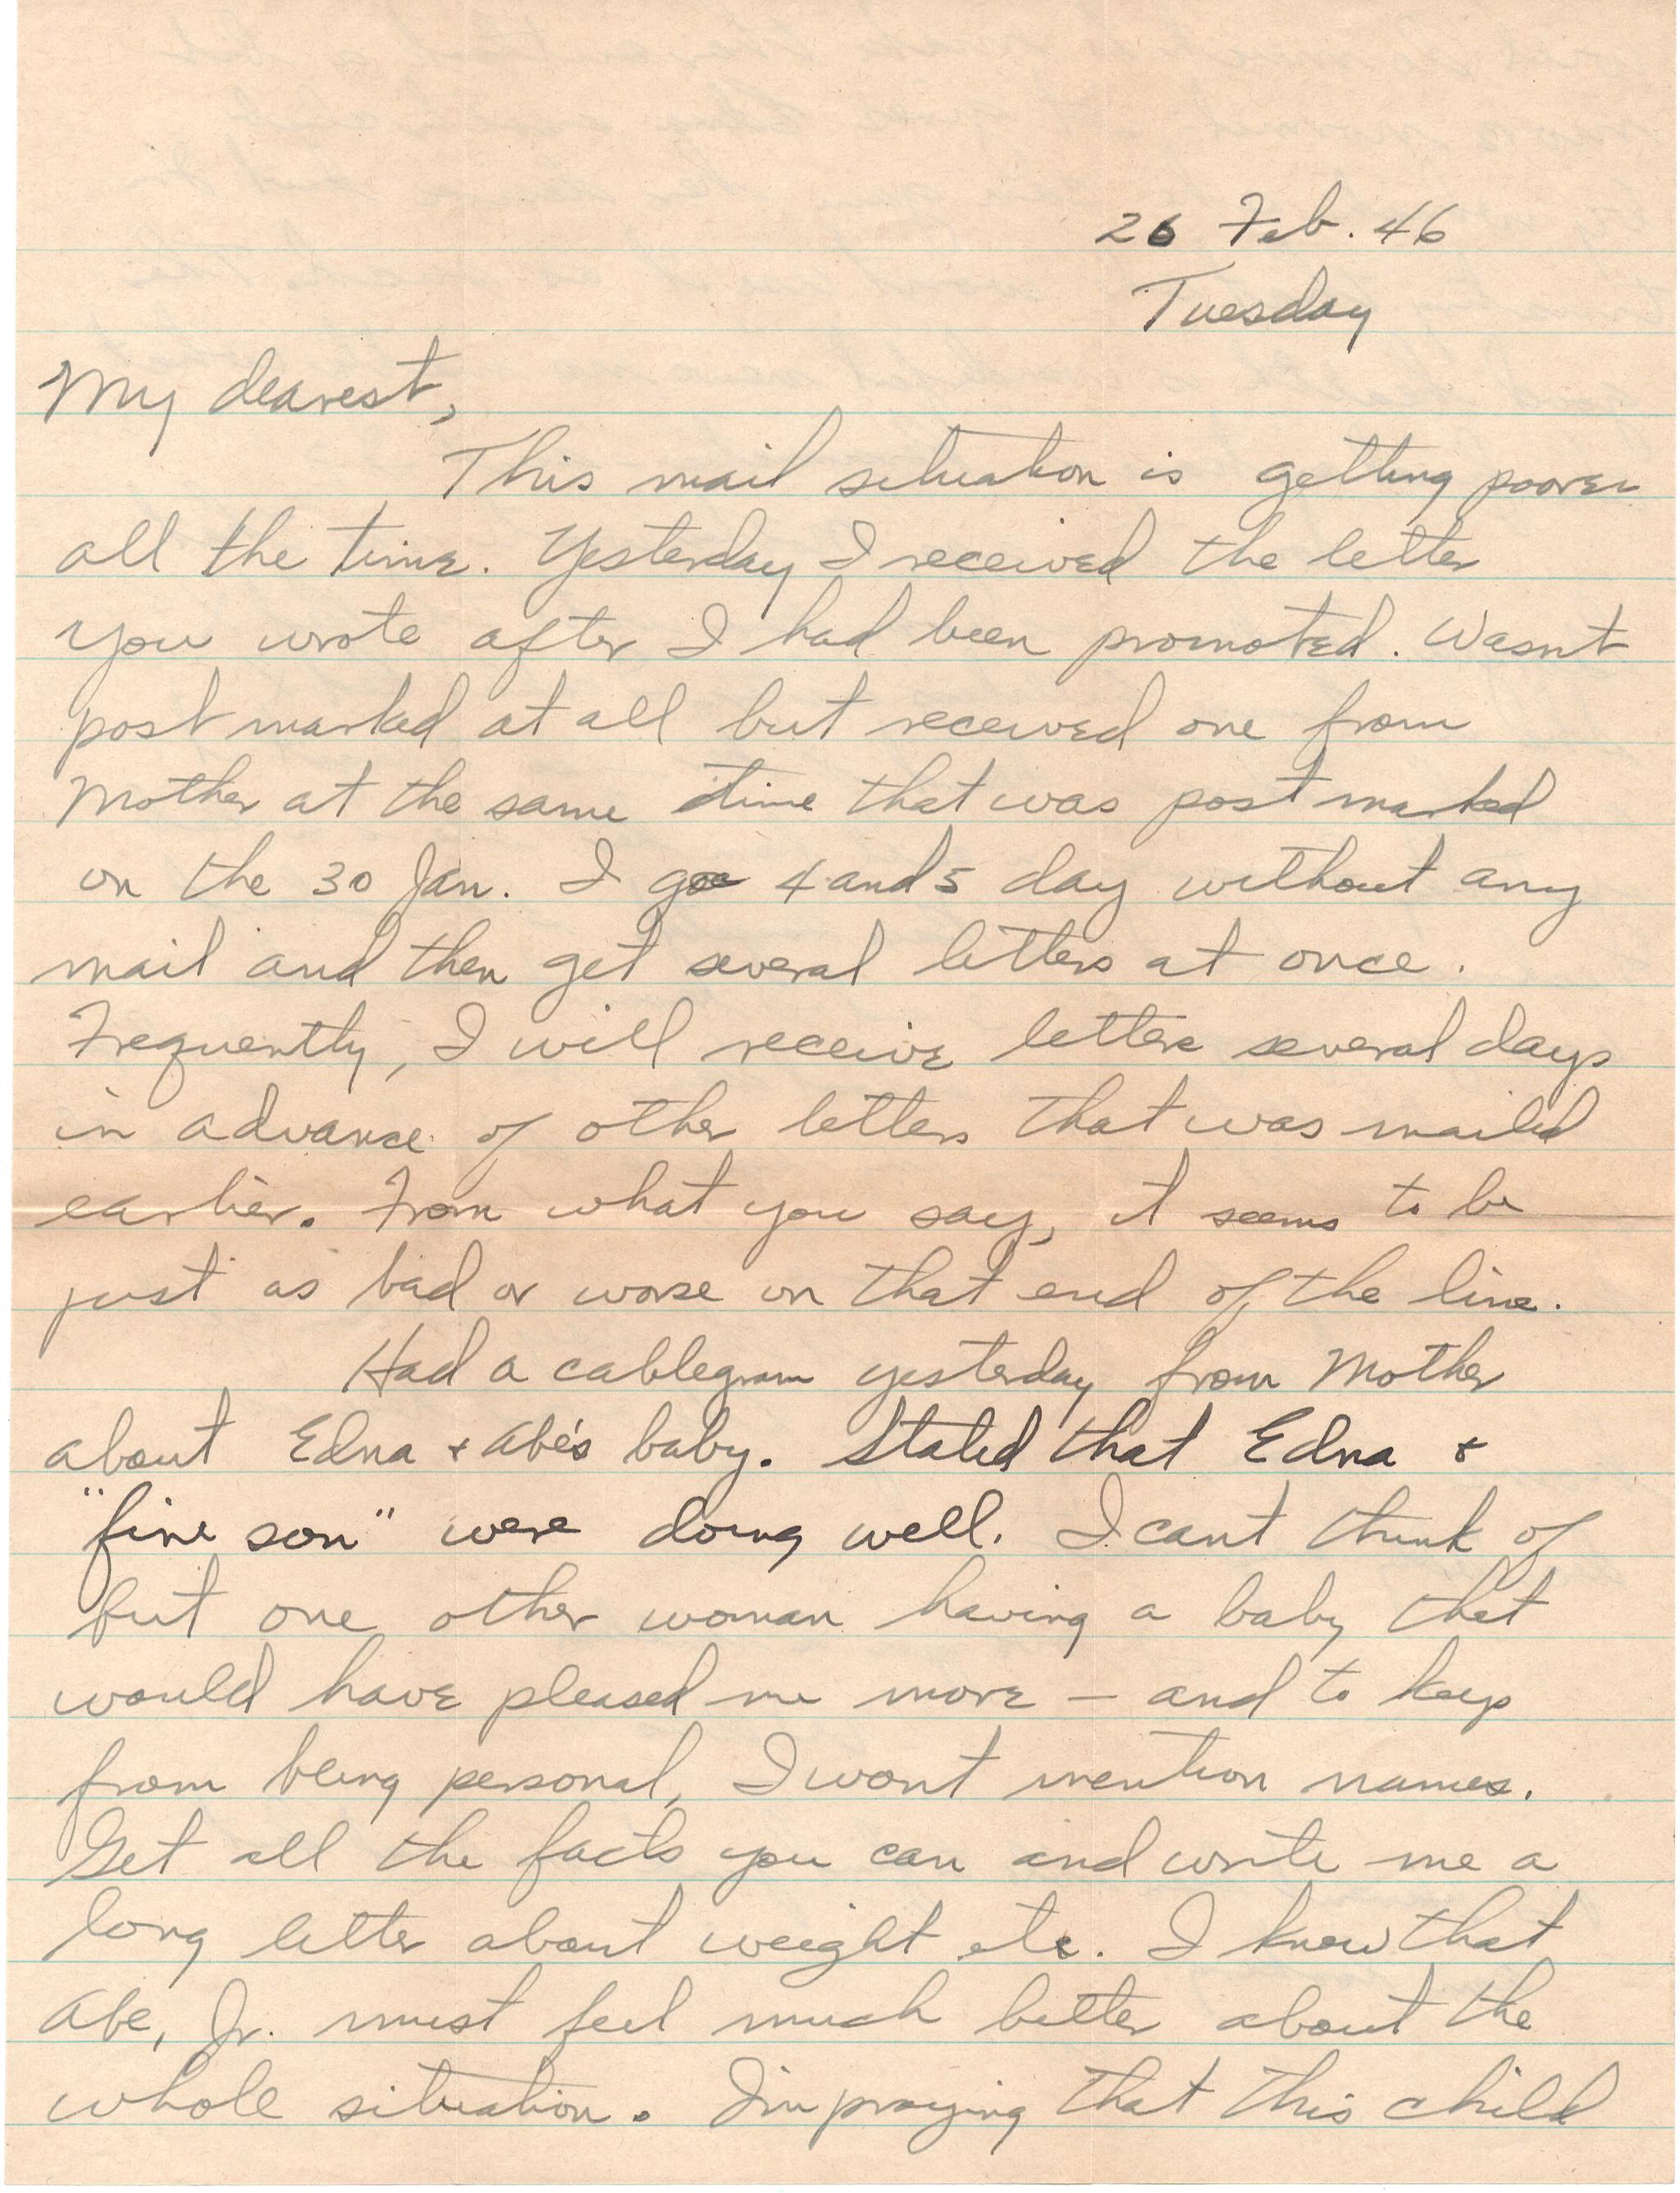 26 Feb. 46
Tuesday
My dearest,
This mail situation is getting poorer
all the time. Yesterday I received the letter
you wrote after I had been promoted. Wasnt
post marked at all but received one from
Mother at the same time that was post marked
on the 30 Jan. I go 4 and 5 day without any
mail and then get several letters at once.
Frequently, I will receive letters several days
in advance of other letters that was mailed
earlier. From what you say, it seems to be
just as bad or worse on that end of the line.
Had a cablegram yesterday from Mother
about Edna + Abe's baby. Stated that Edna +
"fine son" were doing well. I cant think of
but one other woman having a baby that
would have pleased me more — and to keep
from being personal, I wont mention names.
Get all the facts you can and write me a
long letter about weight etc. I know that
Abe, Jr. must feel much better about the
whole situation. I'm praying that this child